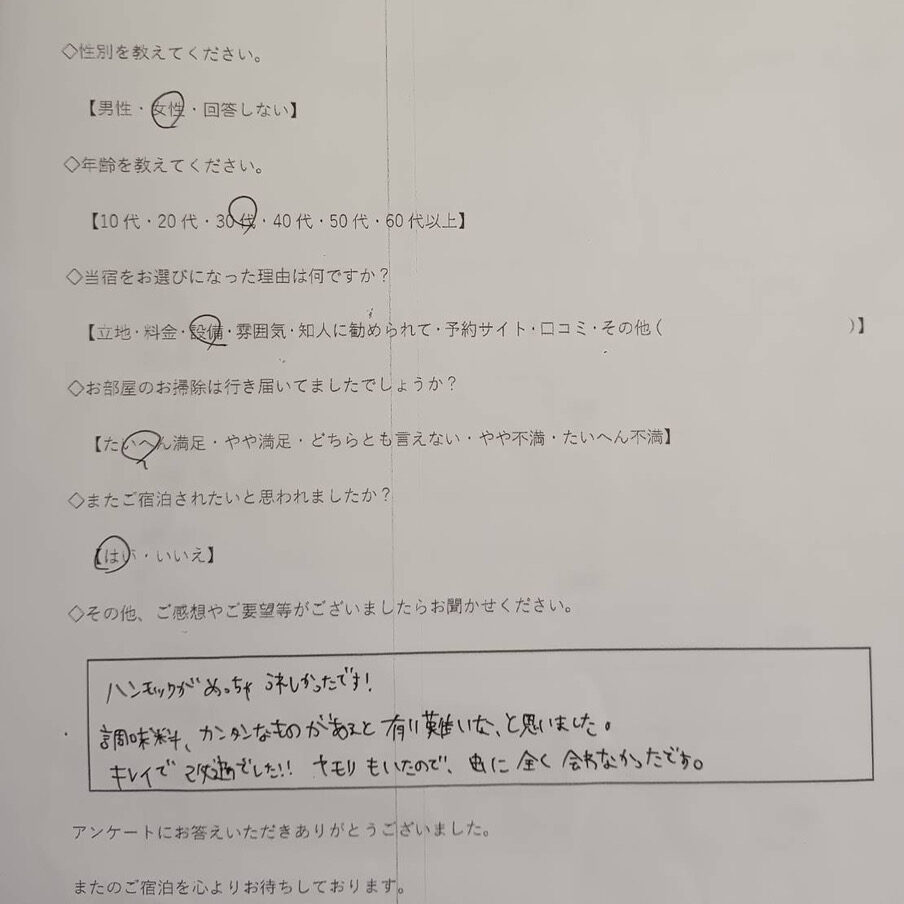 ◇性別を教えてください。
【男性・女性・回答しない】
◇年齢を教えてください。
【10代・20代・30代・40代・50代・60代以上】
◇当宿をお選びになった理由は何ですか？
【立地・料金・設備・雰囲気・知人に勧められて・予約サイト・口コミ・その他（　　　　　　　　　　）】
◇お部屋のお掃除は行き届いてましたでしょうか？
【たいへん満足・やや満足・どちらとも言えない・やや不満・たいへん不満】
◇またご宿泊されたいと思われましたか？
【はい・いいえ】
◇その他、ご感想やご要望等がございましたらお聞かせください。
ハンモックがめっちゃ うれしかったです！
調味料、カンタンなものがあると 有り難いな、と思いました。
キレイで 快適でした!! ヤモリもいたので、虫に 全く 会わなかったです。
アンケートにお答えいただきありがとうございました。
またのご宿泊を心よりお待ちしております。